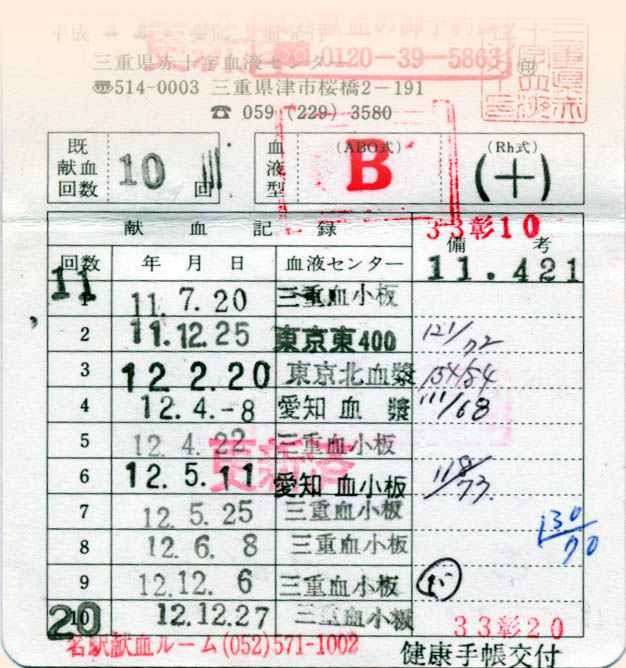 献血の御予約は
0120-39-5863
三重県赤十字血液センター 印
〠514-0003 三重県津市桜橋2-191
☎ 059 (229) 3580
既献血回数 10 回 血液型 (ABO式) B (Rh式) (+)
33彰10
献血記録 備考
回数 年月日 血液センター 11.421
11 11.7.20 三重血小板
2 11.12.25 東京東400 121/72
3 12.2.20 東京北血漿
4 12.4.-8 愛知 血漿 111/68
5 12.4.22 三重血小板
更新済
6 12.5.11 愛知 血小板 118/73
7 12.5.25 三重血小板
130/70
8 12.6.8 三重血小板
9 12.12.6 三重血小板
20 12.12.27 三重血小板 33彰20
名駅献血ルーム(052)571-1002
健康手帳交付